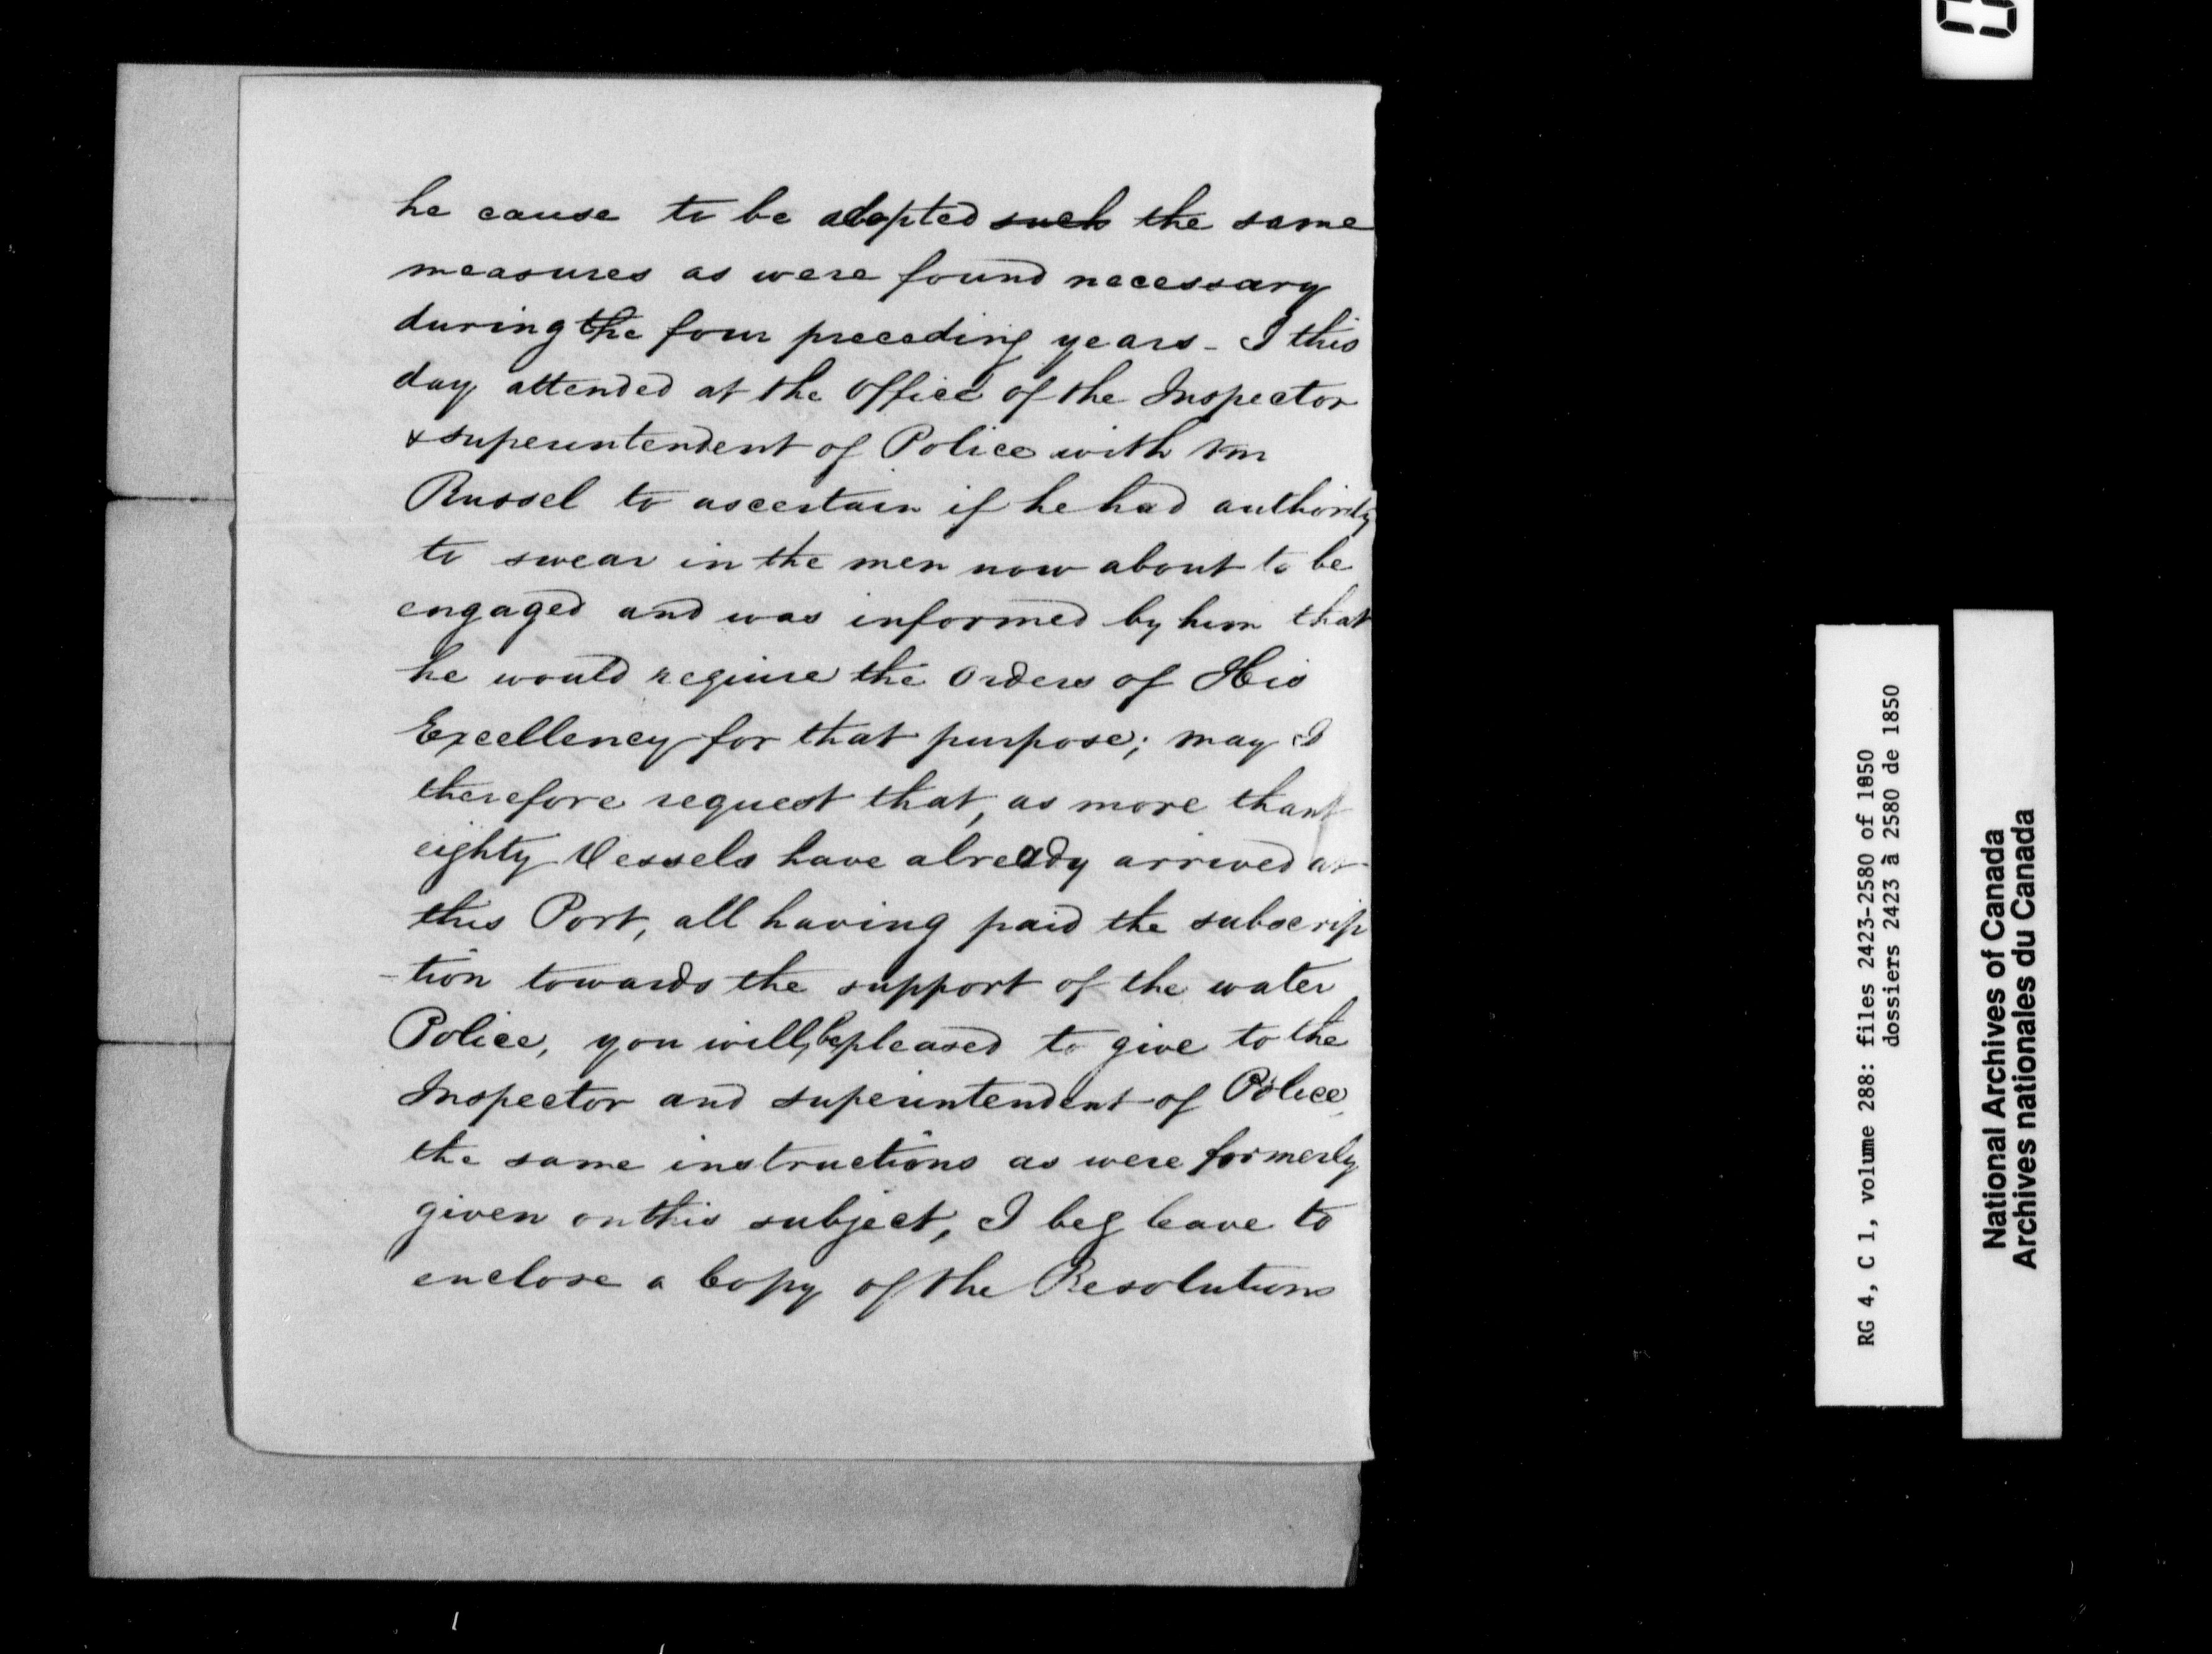 he cause to be adopted such the same
measures as were found necessary
during the four preceding years - I this
day attended at the Office of the Inspector
& superintendent of Police with Mr
Russel to ascertain if he had authority
to swear in the men now about to be
engaged and was informed by him that
he would require the Orders of His
Excellency for that purpose; may I
therefore request that, as more than
eighty Vessels have already arrived at
this Port, all having paid the subscrip
-tion towards the support of the water
Police, you will, be pleased to give to the
Inspector and superintendent of Police,
the same instructions as were formerly
given on this subject, I beg leave to
enclose a Copy of the Resolutions
RG 4, C 1, volume 288: files 2423-2580 of 1850
dossiers 2423 à 2580 de 1850
National Archives of Canada
Archives nationales du Canada